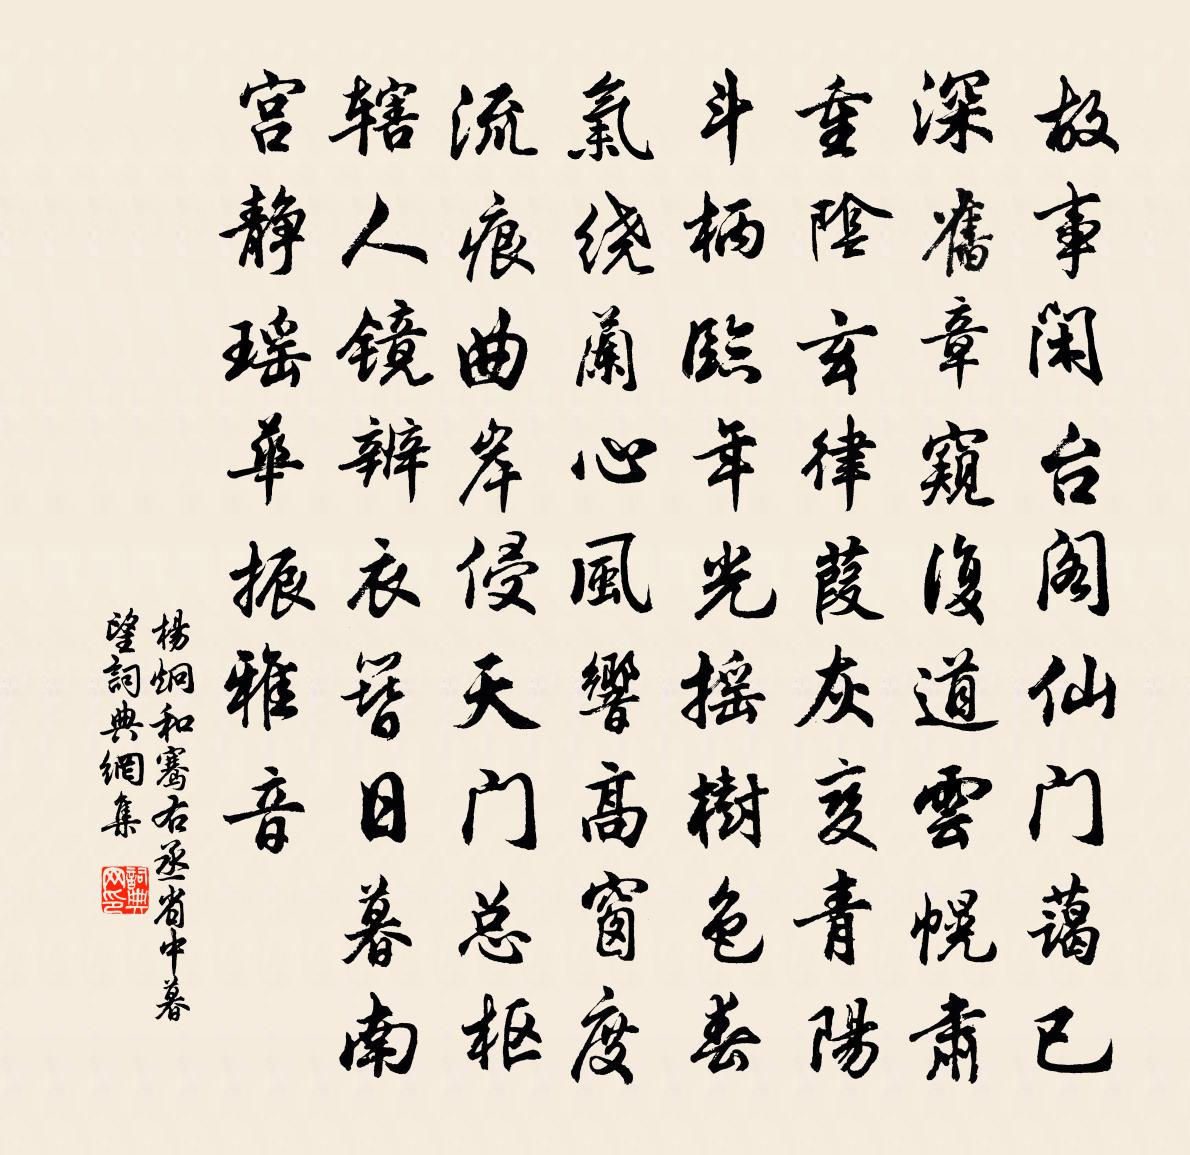 故事閑台阁仙门蔼已
深舊章窺復道雲幌肃
重陰玄律葭灰变青陽
斗柄臨年光摇樹色春
氣绕蘭心風響高窗度
流痕曲岸侵天门总枢
辖人镜辨衣簪日暮南
宫靜瑶華振雅音
楊炯和骞右丞省中暮
望詞典網集
詞典网印